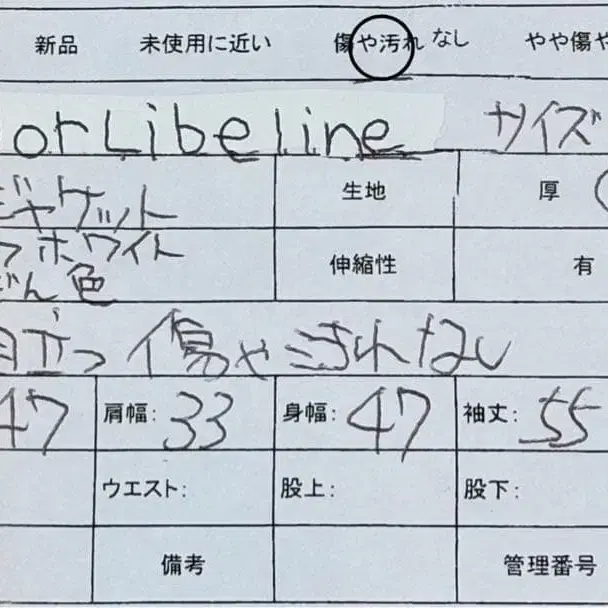 新品 未使用に近い 傷や汚れ なし やや傷や
orLibeline サイズ
ジャケット 生地 厚
フホワイト
どん色 伸縮性 有
目立つ傷や汚れなし
47 肩幅: 33 身幅: 47 袖丈: 55
ウエスト: 股上: 股下:
備考 管理番号